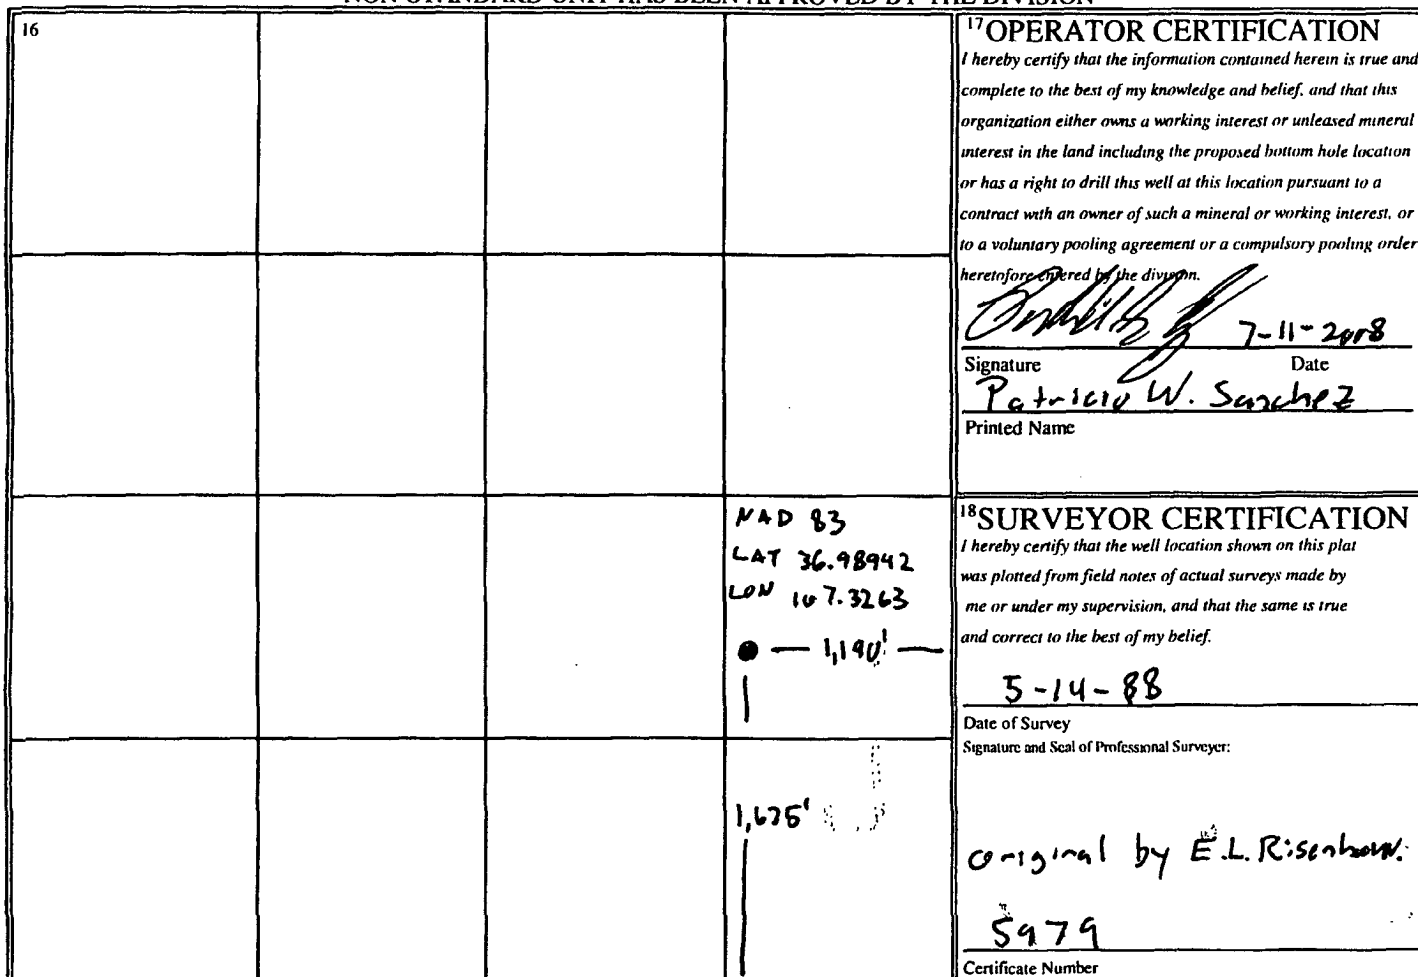 NON-STANDARD UNIT HAS BEEN APPROVED BY THE DIVISION
16
17 OPERATOR CERTIFICATION
I hereby certify that the information contained herein is true and
complete to the best of my knowledge and belief, and that this
organization either owns a working interest or unleased mineral
interest in the land including the proposed bottom hole location
or has a right to drill this well at this location pursuant to a
contract with an owner of such a mineral or working interest, or
to a voluntary pooling agreement or a compulsory pooling order
heretofore entered by the division.
7-11-2008
Signature Date
Patricio W. Sanchez
Printed Name
NAD 83
LAT 36.98942
LON 107.3263
1,190'
1,675'
18 SURVEYOR CERTIFICATION
I hereby certify that the well location shown on this plat
was plotted from field notes of actual surveys made by
me or under my supervision, and that the same is true
and correct to the best of my belief.
5-14-88
Date of Survey
Signature and Seal of Professional Surveyer:
original by E.L.
5979
Certificate Number